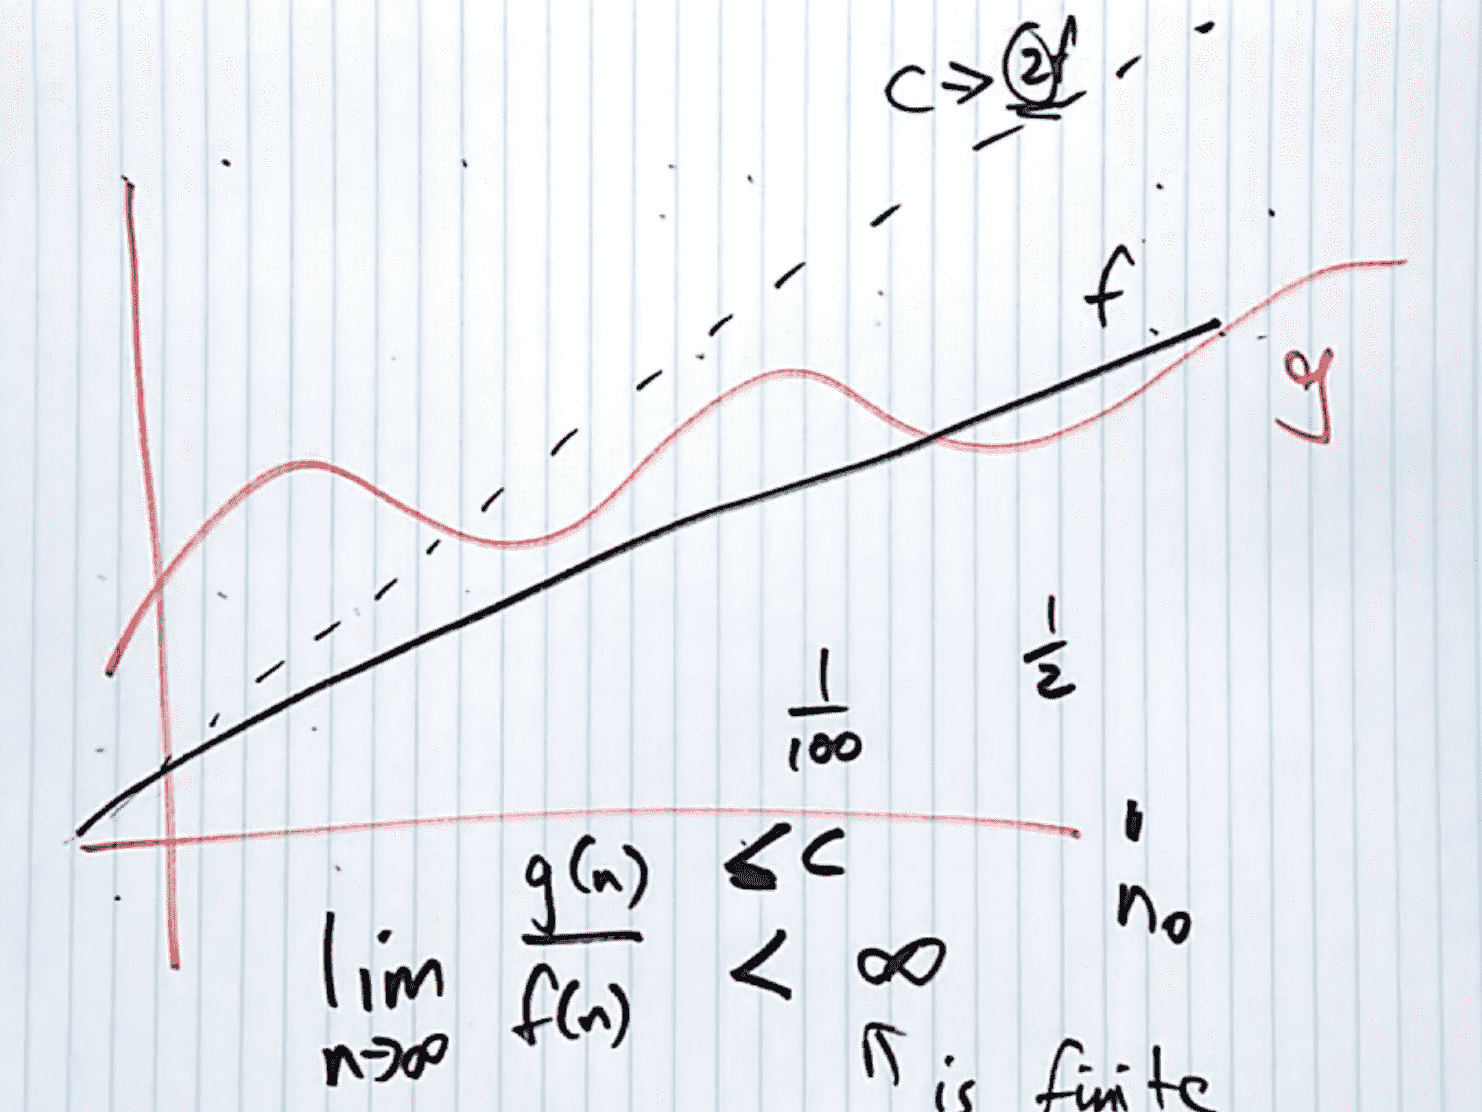 C → 2f
f
g
1/2
1/100
n₀
g(n) ≤ c
lim n→∞ g(n)/f(n) < ∞
↑ is finite